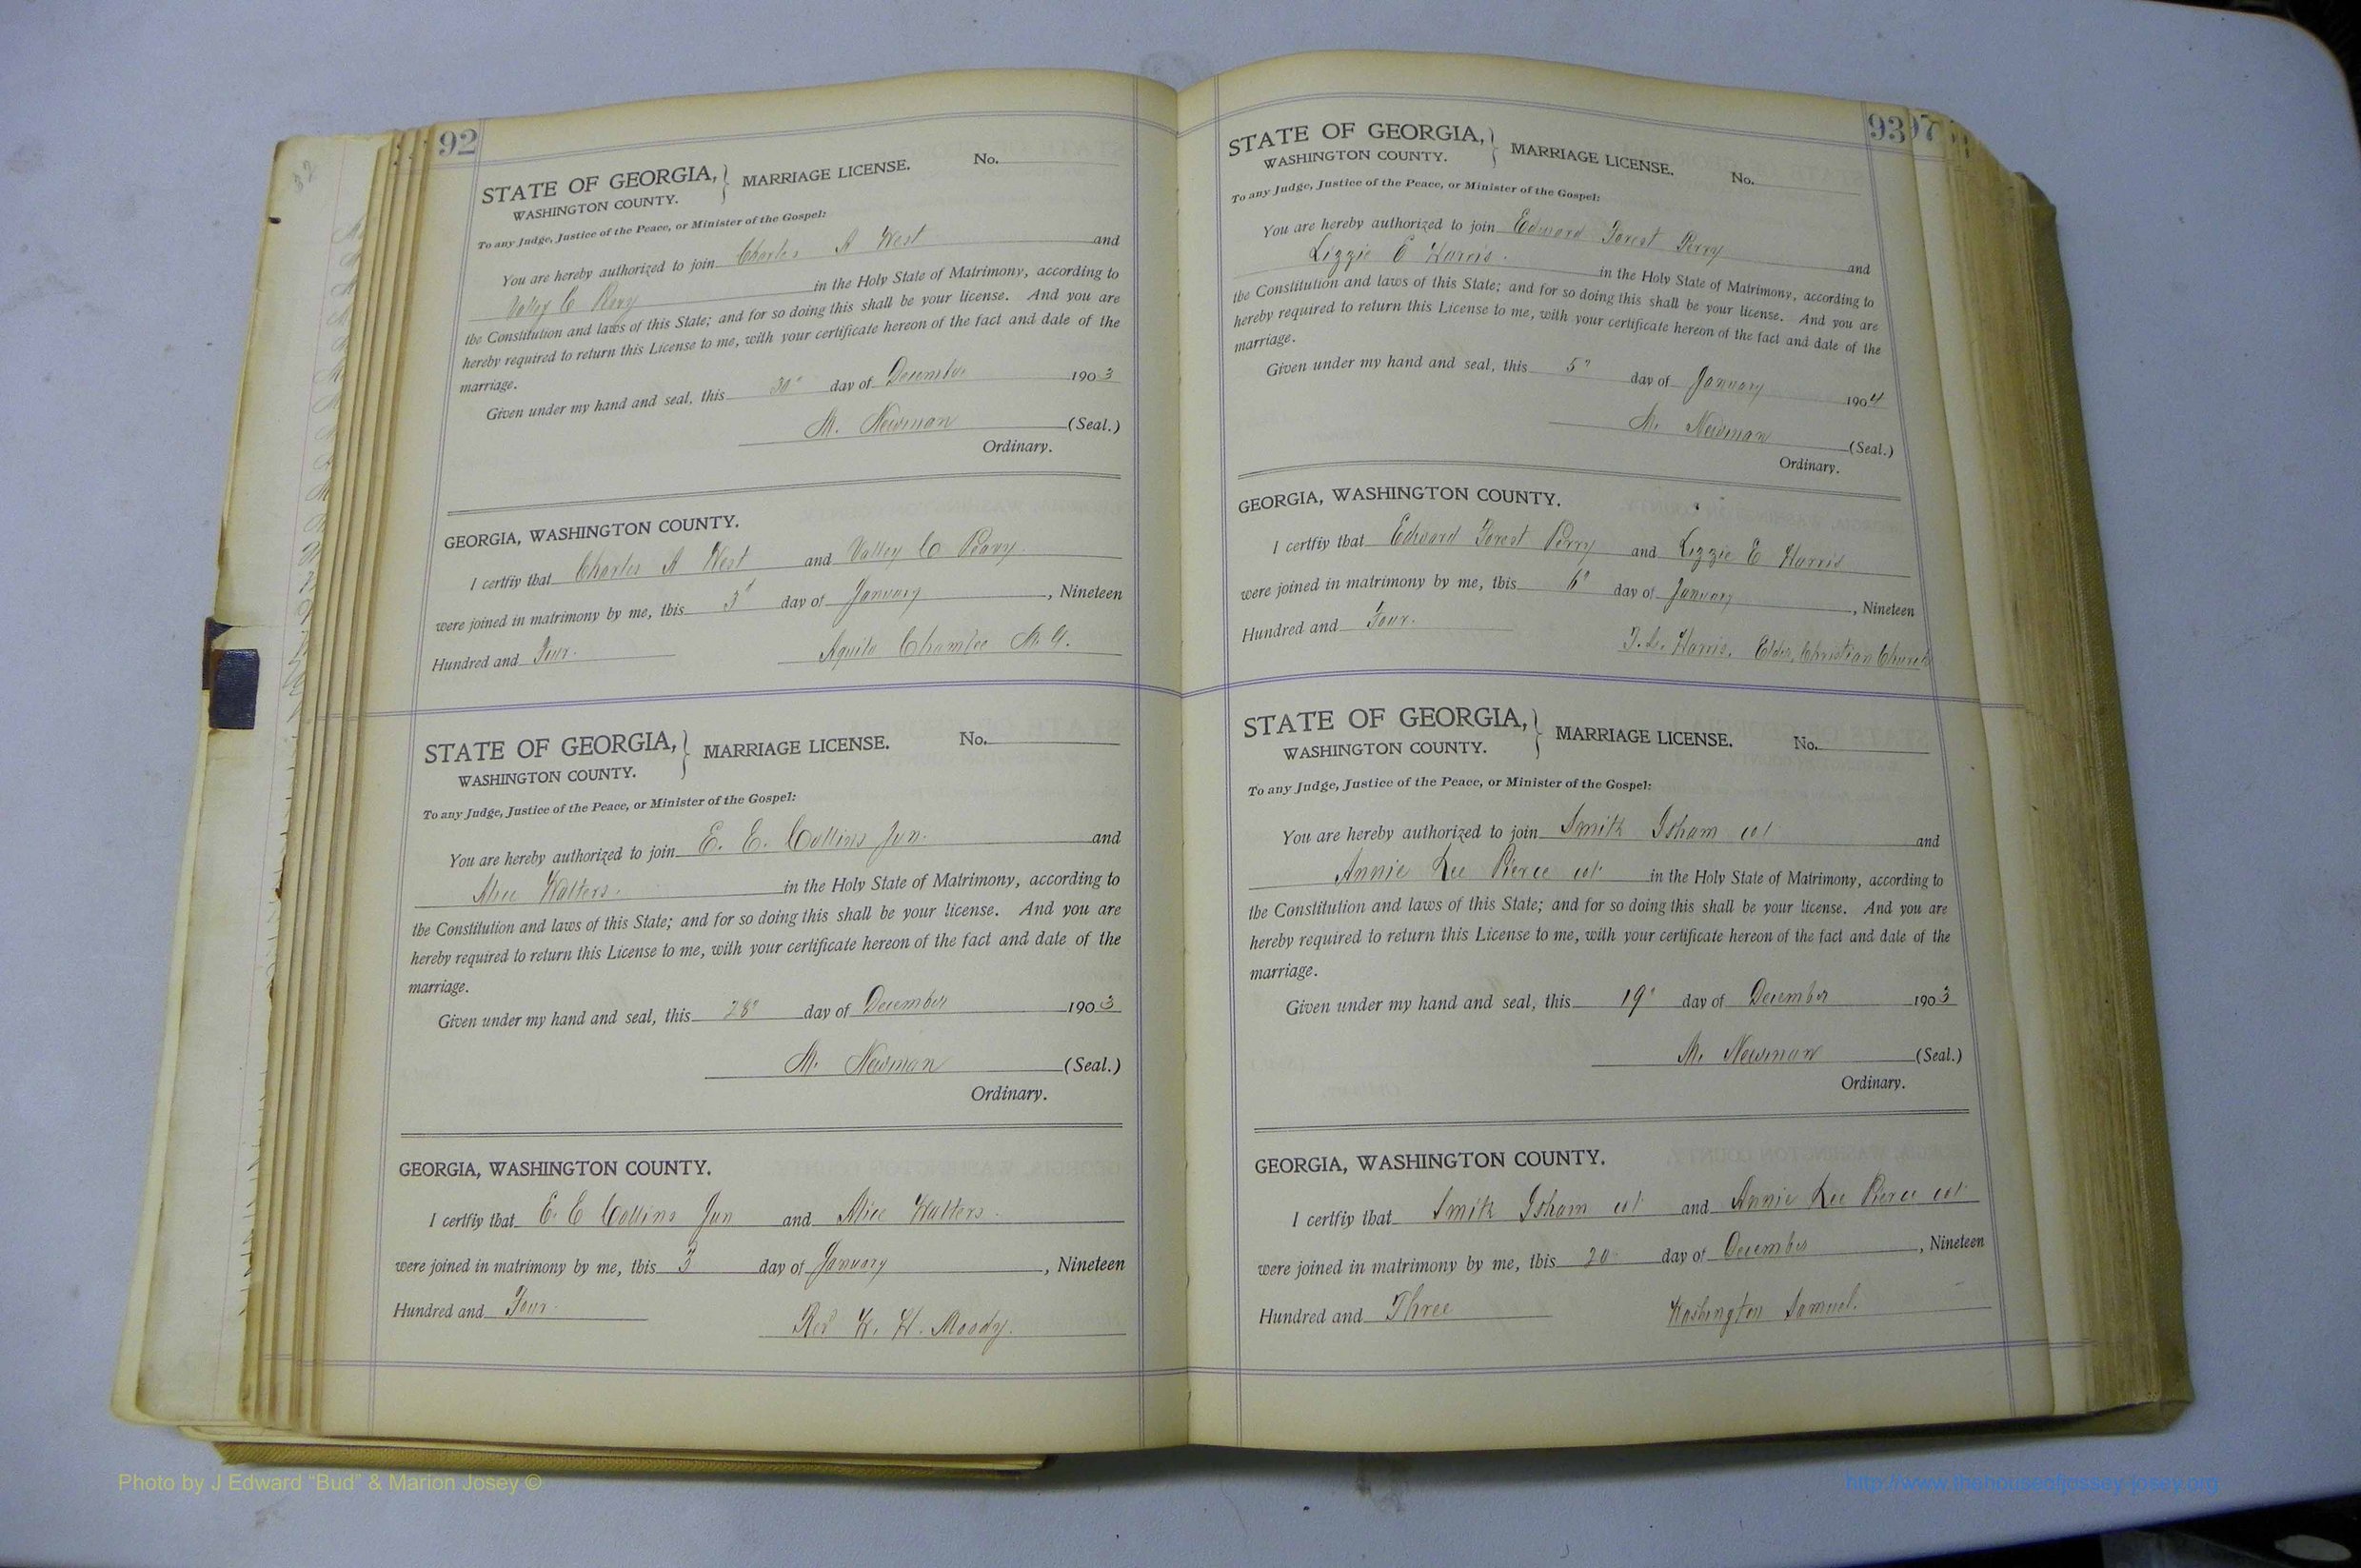 92
STATE OF GEORGIA, } MARRIAGE LICENSE. No.
WASHINGTON COUNTY.
To any Judge, Justice of the Peace, or Minister of the Gospel:
You are hereby authorized to join Charles A West and
Valley C Perry in the Holy State of Matrimony, according to
the Constitution and laws of this State; and for so doing this shall be your license. And you are
hereby required to return this License to me, with your certificate hereon of the fact and date of the
marriage.
Given under my hand and seal, this 30" day of December 1903
M. Newman (Seal.)
Ordinary.
GEORGIA, WASHINGTON COUNTY.
I certfiy that Charles A West and Valley C
were joined in matrimony by me, this 3" day of January, Nineteen
Hundred and Four. Aquila Chamlee M. G.
STATE OF GEORGIA, } MARRIAGE LICENSE. No.
WASHINGTON COUNTY.
To any Judge, Justice of the Peace, or Minister of the Gospel:
You are hereby authorized to join E. E. Collins Jun. and
Alice Walters. in the Holy State of Matrimony, according to
the Constitution and laws of this State; and for so doing this shall be your license. And you are
hereby required to return this License to me, with your certificate hereon of the fact and date of the
marriage.
Given under my hand and seal, this 28" day of December 1903
M. Newman (Seal.)
Ordinary.
GEORGIA, WASHINGTON COUNTY.
I certfiy that E. E Collins Jun and Alice Walters.
were joined in matrimony by me, this 3 day of January, Nineteen
Hundred and Four. Rev W. H. Moody.
93
97
STATE OF GEORGIA, } MARRIAGE LICENSE. No.
WASHINGTON COUNTY.
To any Judge, Justice of the Peace, or Minister of the Gospel:
You are hereby authorized to join Edward Forest Perry and
Lizzie E Harris. in the Holy State of Matrimony, according to
the Constitution and laws of this State; and for so doing this shall be your license. And you are
hereby required to return this License to me, with your certificate hereon of the fact and date of the
marriage.
Given under my hand and seal, this 5" day of January 1904
M. Newman (Seal.)
Ordinary.
GEORGIA, WASHINGTON COUNTY.
I certfiy that Edward Forest Perry and Lizzie E Harris
were joined in matrimony by me, this 6" day of January, Nineteen
Hundred and Four. Harris. Elder, Christian Church
STATE OF GEORGIA, } MARRIAGE LICENSE. No.
WASHINGTON COUNTY.
To any Judge, Justice of the Peace, or Minister of the Gospel:
You are hereby authorized to join Smith Isham col and
Annie Lee Pierce col in the Holy State of Matrimony, according to
the Constitution and laws of this State; and for so doing this shall be your license. And you are
hereby required to return this License to me, with your certificate hereon of the fact and date of the
marriage.
Given under my hand and seal, this 19" day of December 1903
M. Newman (Seal.)
Ordinary.
GEORGIA, WASHINGTON COUNTY.
I certfiy that Smith Isham col and Annie Lee Pierce col
were joined in matrimony by me, this 20 day of December, Nineteen
Hundred and Three Washington Samuel.
Photo by J Edward “Bud” & Marion Josey ©
http://www.thehouseofjossey-josey.org